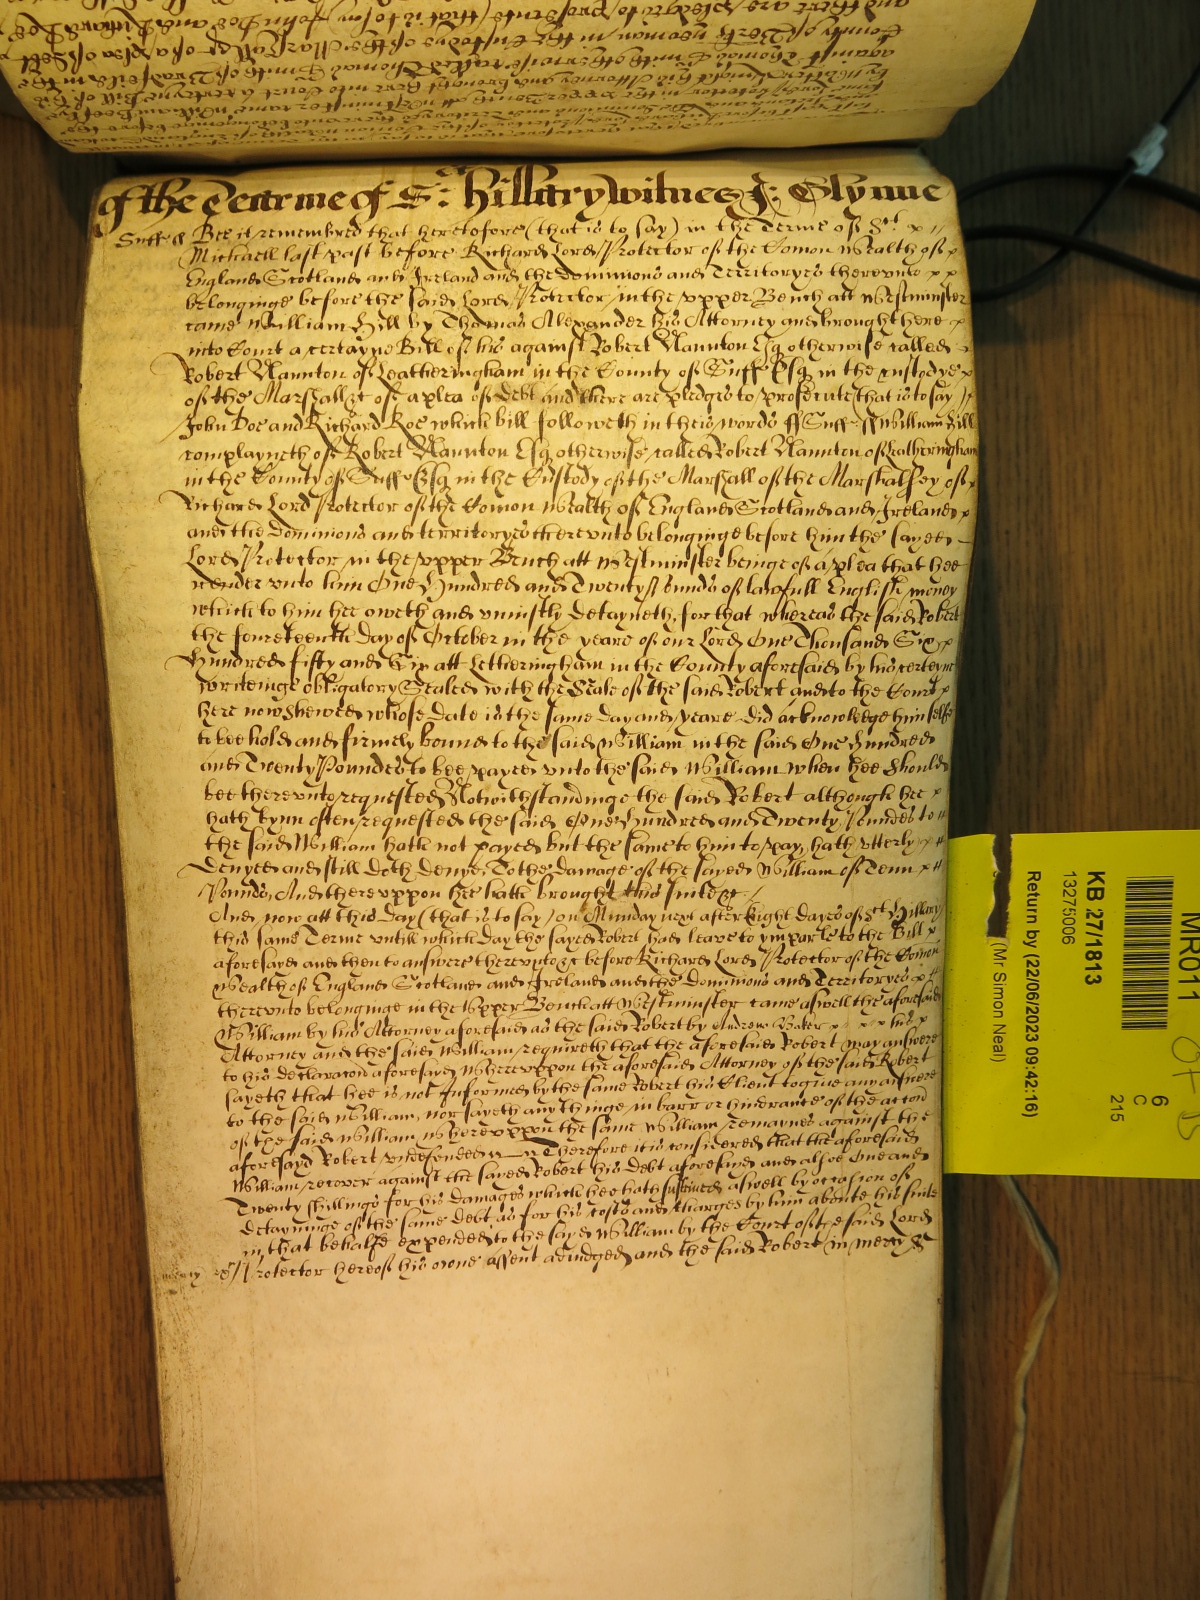 of the Tearme of St: Hillary witnes J: Glynne
Suff ss Bee it remembred that heretofore (that is to say) in the Terme of St
Michaell last past before Richard Lord Protector of the Comon Wealth of
England Scotland and Ireland and the Dominions and Territoryes therevnto
belonginge before the said Lord Protector in the vpper Bench att Westminster
came William Hill by Thomas Alexander his Attorney and brought here
into Court a certayne Bill of his against Robert Naunton Esq otherwise called
Robert Naunton of Leatheringham in the County of Suff Esq in the custodye
of the Marshall &c of a plea of Debt and there are pledges to prosecute that is to say
John Doe and Richard Roe which bill followeth in theis words ss Suff ss William Hill
complayneth of Robert Naunton Esq otherwise called Robert Naunton of Leatheringham
in the County of Suff Esq in the Custody of the Marshall of the Marshalsey of
Richard Lord Protector of the Comon Wealth of England Scotland and Ireland
and the Dominions and territoryes therevnto belonginge before him the sayed
Lord Protector in the vpper Bench att Westminster beinge of a plea that hee
render vnto him One Hundred and Twenty Pounds of lawfull English money
which to him hee oweth and vniustly detayneth, for that whereas the said Robert
the fourteenth day of October in the yeare of our Lord One Thousand Six
Hundred fifty and Six att Letheringham in the County aforesaid by his certeyne
writeinge obligatory Sealed with the Seale of the said Robert and to the Court
here now shewed whose date is the same day and yeare did acknowledge himselfe
to bee hold and firmely bound to the said William in the said One Hundred
and Twenty Poundes to bee payed vnto the said William when hee should
bee therevnto requested Notwithstandinge the said Robert although hee
hath bynn often requested the said One Hundred and Twenty Poundes to
the said William hath not payed but the same to him to pay, hath vtterly
denyed and still doth denye To the damage of the sayed William of Tenn
Pounds, And therevppon hee hath brought this suite &c
And now att this day (that is to say) on Munday next after Eight dayes of St Hillary
this same Terme vntill which day the sayed Robert had leave to ymparle to the Bill
aforesayd and then to answere therevnto &c before Richard Lord Protector of the Comon
Wealth of England Scotland and Ireland and the Dominions and Territoryes
therevnto belonginge in the Vpper Bench att Westminster came aswell the aforesaid
William by his Attorney aforesaid as the said Robert by Andrew Baker his
Attorney and the said William requireth that the aforesaid Robert may answere
to his declaracon aforesayed Wherevppon the aforesaid Attorney of the said Robert
sayeth that hee is not Informed by the same Robert his Client to giue any answere
to the said William, nor sayeth any thinge in barr or hinderance of the accon
of the said William, Wherevppon the same William remaynes against the
aforesayd Robert vndefended Therefore it is considered that the aforesaid
William recover against the sayed Robert his debt aforesaid and alsoe One and
Twenty shillings for his damages which hee hath susteined aswell by occasion of
detayninge of the same debt as for his costs and charges by him aboute his suite
in that behalfe expended to the sayd William by the Court of the said Lord
Protector hereof his owne assent adiudged and the said Robert in mercy &c
MR011
6
C
215
KB 27/1813
13275006
Return by (22/06/2023 09:42:16)
(Mr Simon Neal)